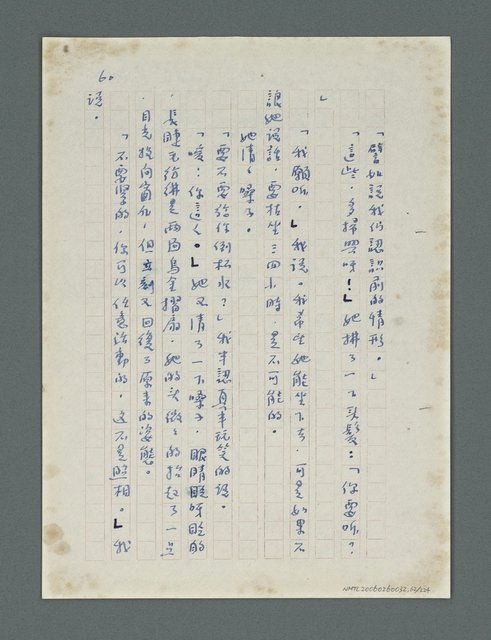 「譬如說我們認識前的情形。」
「這些，多掃興呀！」她拂了一下頭髮：「你要听？
」
「我願听。」我說。我希望她能坐下去，可是如果不
跟她說話，要枯坐三四小時，是不可能的。
她清清嗓子。
「要不要給你倒杯水？」我半認真半玩笑的說。
「嗳！你這人。」她又清了一下嗓子，眼睛眨呀眨的
，長睫毛彷彿是兩面烏金摺扇，她的頭微微的抬起了一点
，目光投向窗外，但立刻又回復了原来的姿態。
「不要緊的，你可以任意活動的，这不是照相。」我
說。
60
NMTL20060260032,62/124